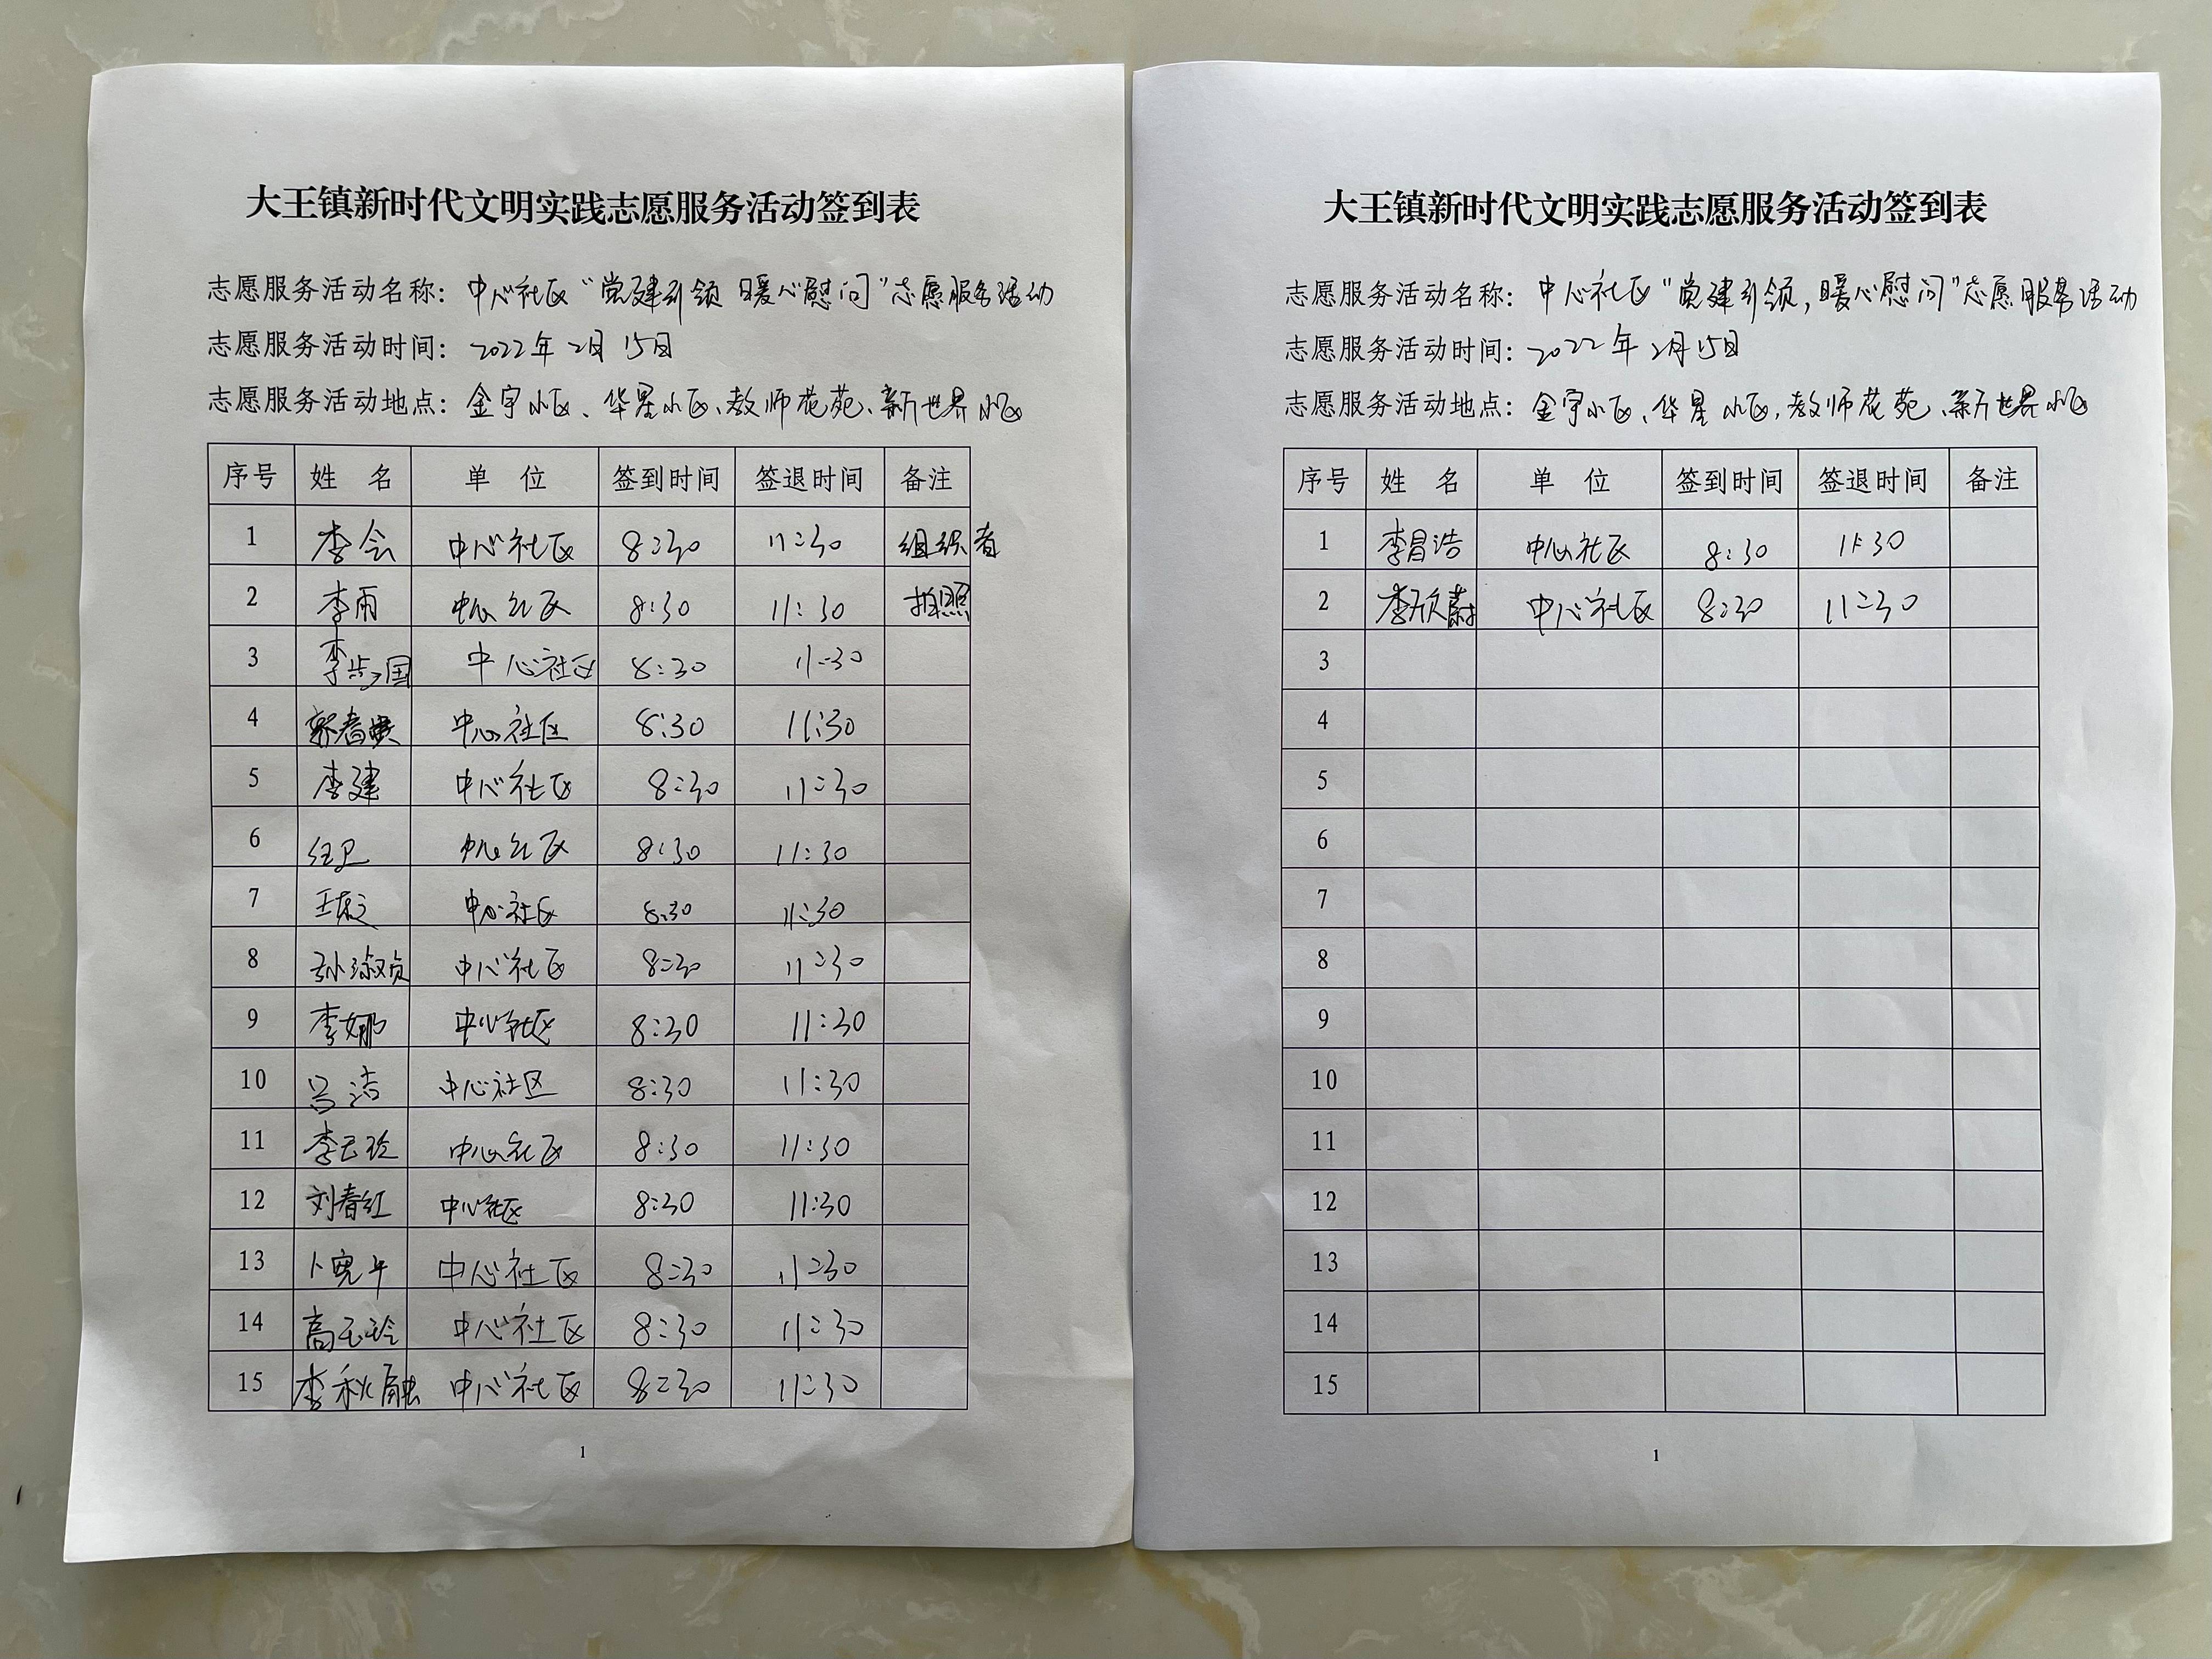 大王镇新时代文明实践志愿服务活动签到表
志愿服务活动名称：中心社区“党建引领 暖心慰问”志愿服务活动
志愿服务活动时间：2022年2月15日
志愿服务活动地点：金宇小区、华星小区、教师花苑、新世界小区
序号 姓名 单位 签到时间 签退时间 备注
1 李会 中心社区 8:30 11:30 组织者
2 李雨 中心社区 8:30 11:30 拍照
3 中心社区 8:30 11:30
4 中心社区 8:30 11:30
5 李建 中心社区 8:30 11:30
6 中心社区 8:30 11:30
7 中心社区 8:30 11:30
8 孙淑贞 中心社区 8:30 11:30
9 李娜 中心社区 8:30 11:30
10 吕洁 中心社区 8:30 11:30
11 李玉玲 中心社区 8:30 11:30
12 刘春红 中心社区 8:30 11:30
13 中心社区 8:30 11:30
14 高玉玲 中心社区 8:30 11:30
15 李秋融 中心社区 8:30 11:30
1
大王镇新时代文明实践志愿服务活动签到表
志愿服务活动名称：中心社区“党建引领，暖心慰问”志愿服务活动
志愿服务活动时间：2022年2月15日
志愿服务活动地点：金宇小区、华星小区，教师花苑、新世界小区
序号 姓名 单位 签到时间 签退时间 备注
1 李昌浩 中心社区 8:30 11:30
2 李欣蔚 中心社区 8:30 11:30
3
4
5
6
7
8
9
10
11
12
13
14
15
1